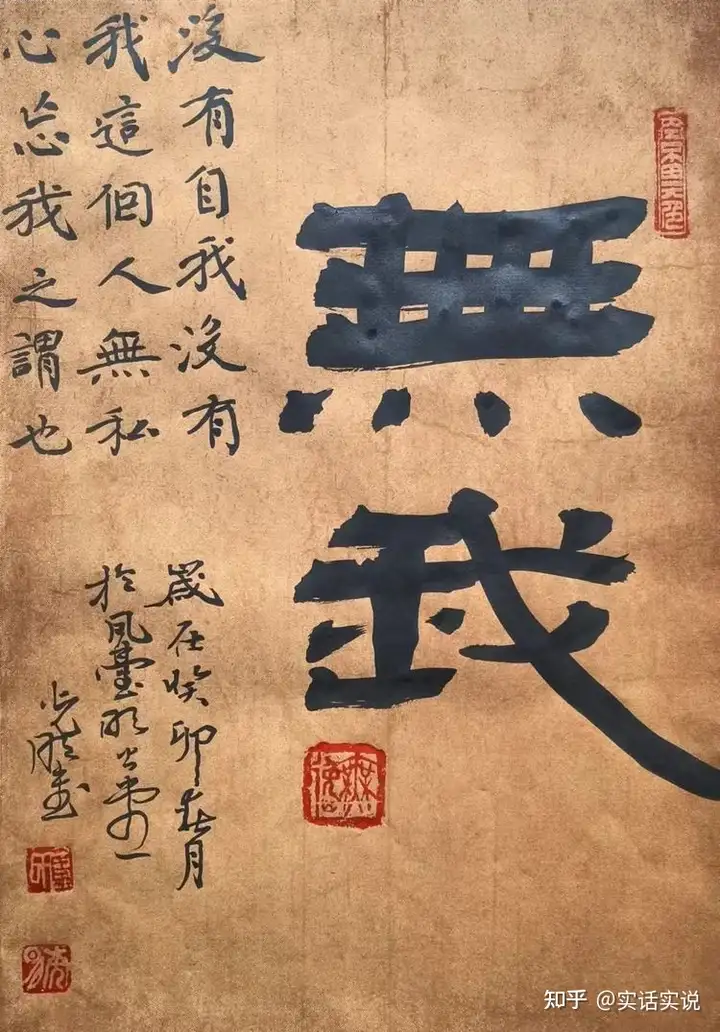 無我
沒有自我沒有
我這個人無私
心忘我之謂也
歲在癸卯春月
於凤臺
書
知乎 @实话实说